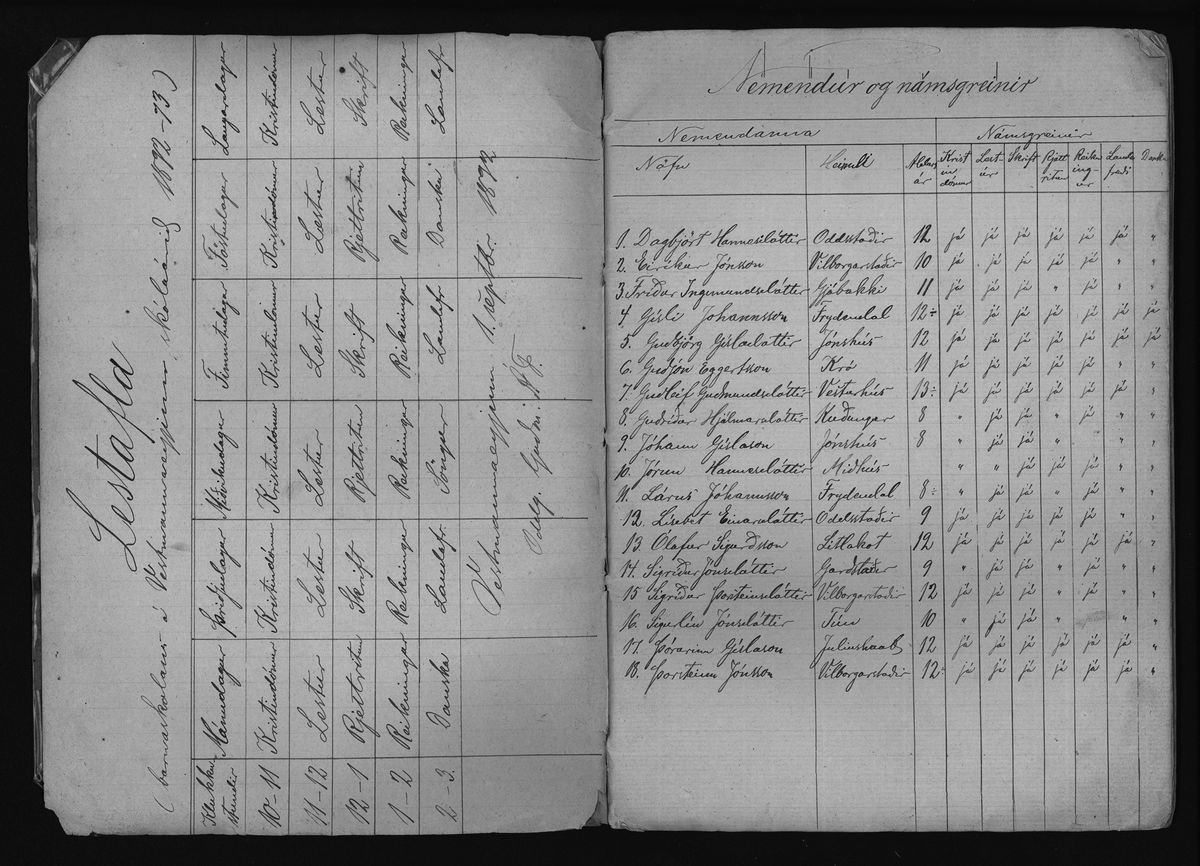 Lestafla
(barnaskólans á Vestmannaeyjum, skólaárið 1892-93)
Klukku stundir Mánudagur Þriðjudagur Miðvikudagur Fimmtudagur Föstudagur Laugardagur
10-11 Kristindómur Kristindómur Kristindómur Kristindómur Kristindómur Kristindómur
11-12 Lestur Lestur Lestur Lestur Lestur Lestur
12-1 Rjettritun Skrift Rjettritun Skrift Rjettritun Skrift
1-2 Reikningur Reikningur Reikningur Reikningur Reikningur Reikningur
2-3 Danska Landafr. Söngur Landafr. Danska Landafr.
Vestmannaeyjum 1. septbr. 1892
Oddg. Guðm.
Nemendur og námsgreinir
Nemendanna Námsgreinir
Nöfn Heimili Aldur ár Krist in dómur Lest ur Skrift Rjett ritun Reikn ing ur Landa fræði Danska
1. Dagbjört Hannesdóttir Oddsstaðir 12 já já já já já já "
2. Eiríkur Jónsson Vilborgarstaðir 10 já já já já já " "
3. Fríður Ingimundsdóttir Gjábakki 11 já já já " já " "
4. Gísli Jóhannsson Frydendal 12÷ já já já já já já já
5. Guðbjörg Gísladóttir Jónshús 12 já já já já já já já
6. Guðjón Eggertsson Kró 11 já já já já já " "
7. Guðleif Guðmundsdóttir Vesturhús 13÷ já já já já já já "
8. Guðríður Hjálmarsdóttir Kuðungur 8 " já já " já " "
9. Jóhann Gíslason Jónshús 8 " já já " já " "
10. Jórun Hannesdóttir Miðhús " " já já já " "
11. Lárus Jóhannsson Frydendal 8÷ " já já " já " "
12. Lísebet Einarsdóttir Oddsstaðir 9 já já já já já " "
13. Ólafur Sigurðsson Litlakot 12 já já já já já já "
14. Sigríður Jónsdóttir Garðstaðir 9 " já já já já " "
15 Sigríður Þorsteinsdóttir Vilborgarstaðir 12 já já já " já " "
16. Sigurlín Jónsdóttir Túni 10 " já já " " "
17. Þórarinn Gíslason Juliushaab 12 já já já já já já "
18. Þorsteinn Jónsson Vilborgarstaðir 12÷ já já já já já já "